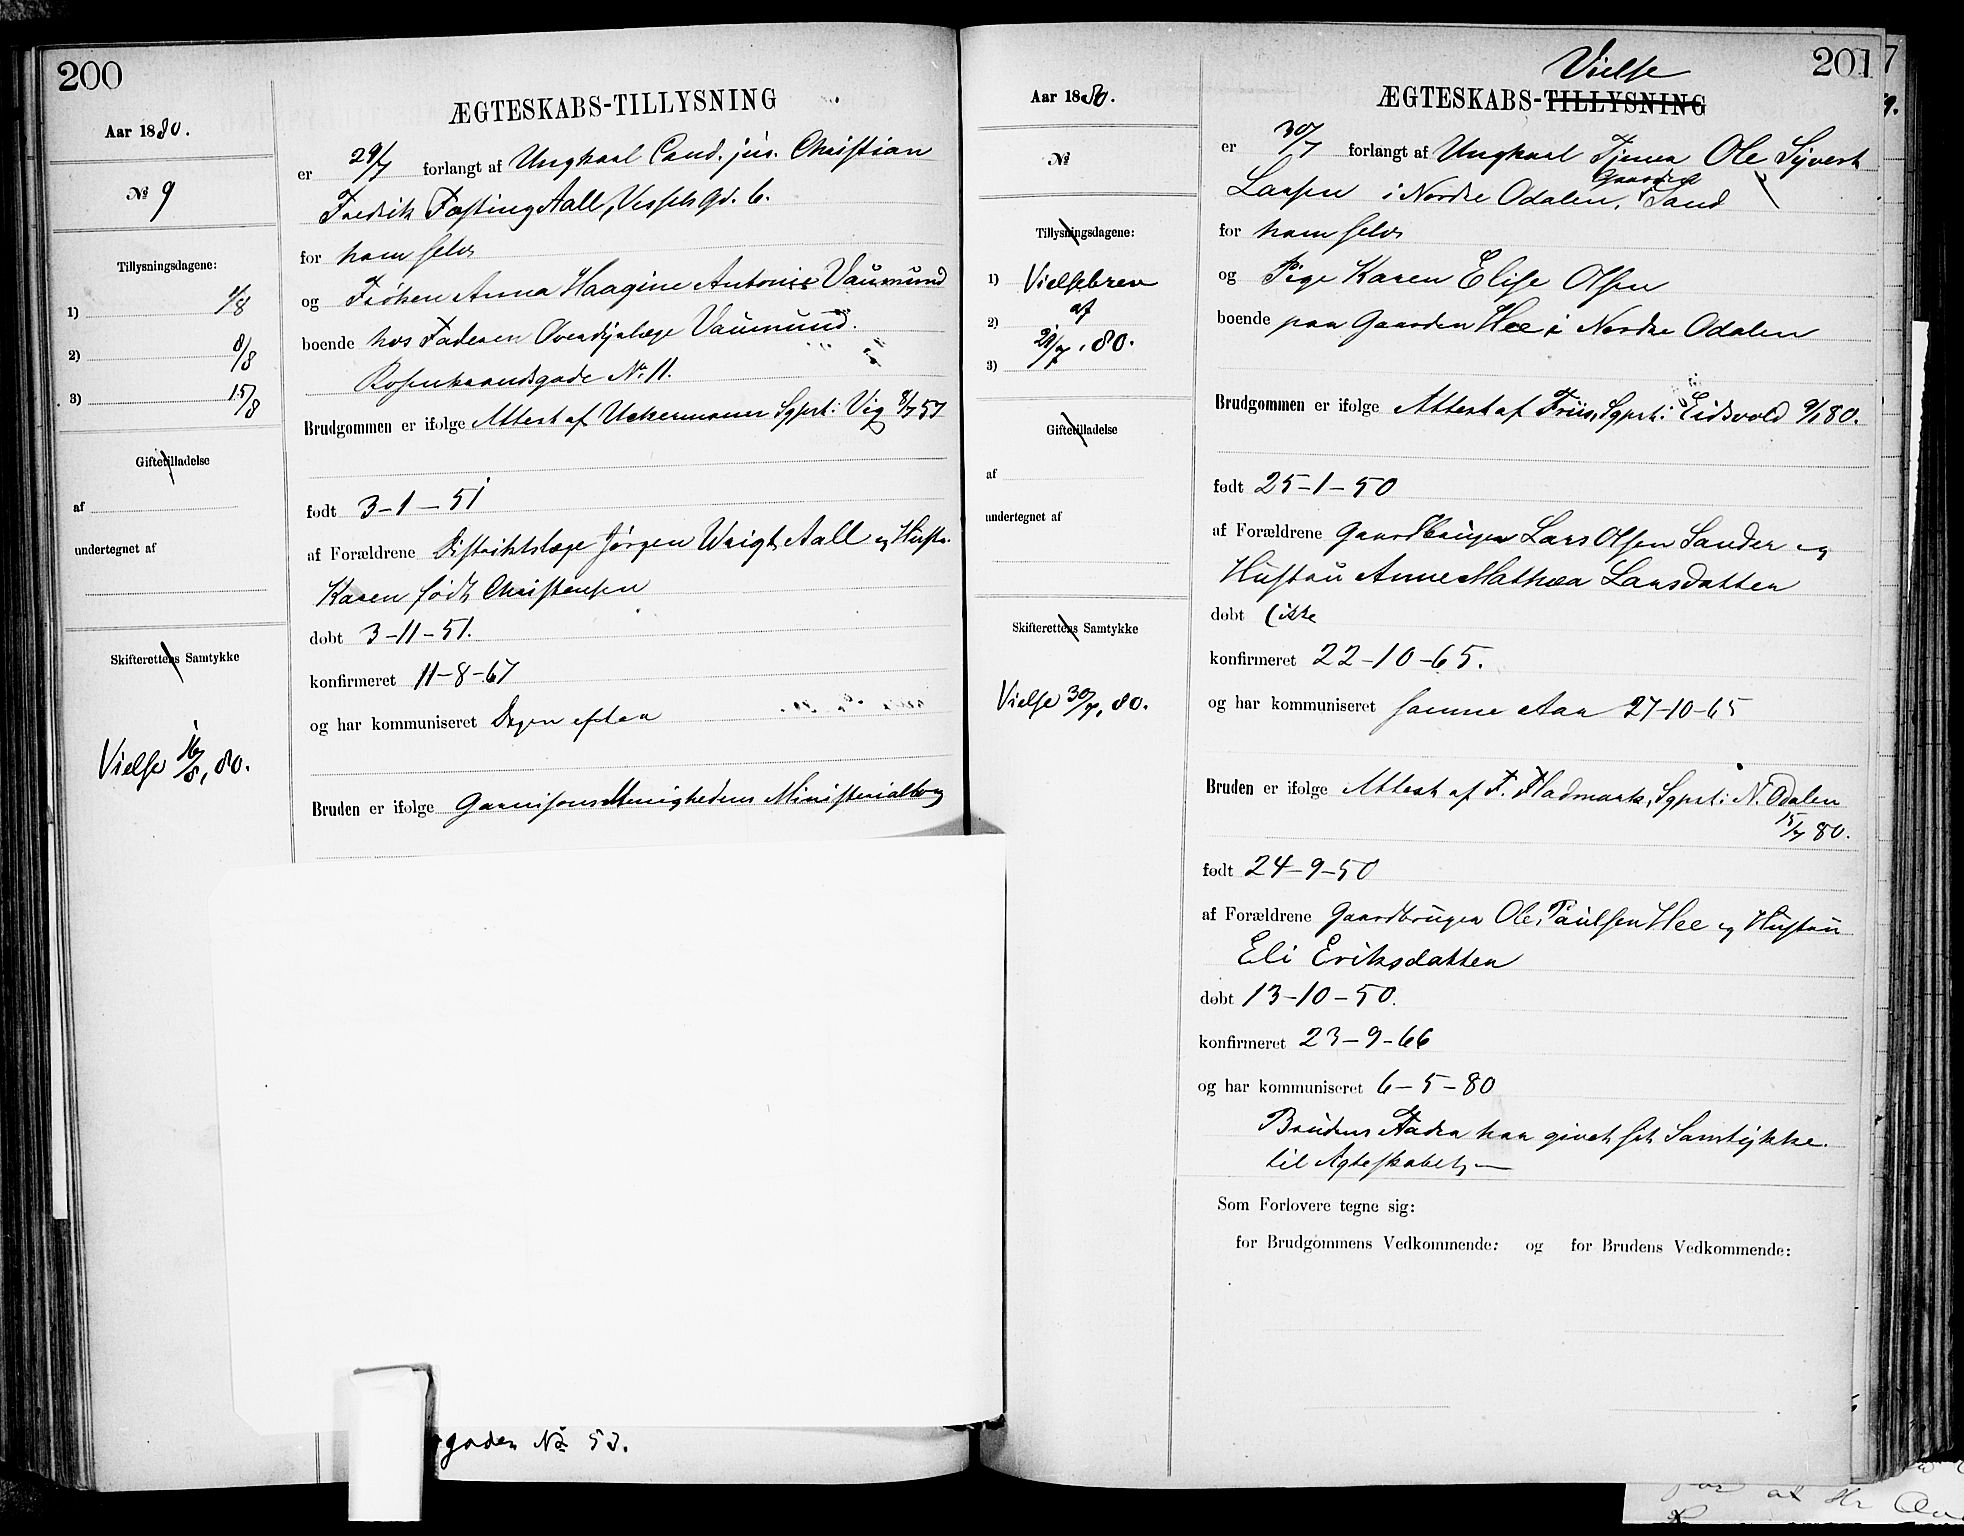 200
Aar 1880.
№ 9
Tillysningsdagene:
1) 1/8
2) 8/8
3) 15/8
Giftetilladelse
af
undertegnet af
Skifterettens Samtykke
Vielse 16/8, 80.
ÆGTESKABS-TILLYSNING
er 29/7 forlangt af Ungkarl Cand. jur. Christian
Fredrik Fasting Aall, Vessels Gd. 6.
for ham selv
og Frøken Anna Haagine Antonie Vaumund
boende hos Faderen Overdyrlæge Vaumund.
Rosenkrandsgade No. 11.
Brudgommen er ifølge Attest af Uckermann Sgprst: Vig 8/7 57
født 3-1-51
af Forældrene Distriktslæge Jørgen Wrigt Aall og Hustr.
Karen født Christensen
døbt 3-11-51.
konfirmeret 11-8-67
og har kommuniseret Dagen efter
Bruden er ifølge Garnisons Menighedens Ministerialbog
gaden No 53.
201
Aar 1880.
№
Tillysningsdagene:
1) Vielsebrev
2) af
3) 29/7, 80.
Giftetilladelse
af
undertegnet af
Skifterettens Samtykke
Vielse 30/7, 80.
Vielse
ÆGTESKABS-TILLYSNING
er 30/7 forlangt af Ungkarl Tjener Ole Syvert
Gaarden
Larsen i Nordre Odalen, Sand
for ham selv
og Pige Karen Elise Olsen
boende paa Gaarden Hee i Nordre Odalen
Brudgommen er ifølge Attest af Friis, Sgprst: Eidsvold 9/1 80.
født 25-1-50
af Forældrene Gaardbruger Lars Olsen Sander og
Hustru Anne Mathea Larsdatter
døbt (ikke
konfirmeret 22-10-65.
og har kommuniseret samme Aar 27-10-65
Bruden er ifølge Attest af F. Fladmark, Sgprst: N. Odalen
15/7 80.
født 24-9-50
af Forældrene Gaardbruger Ole Paulsen Hee og Hustru
Eli Eriksdatter
døbt 13-10-50.
konfirmeret 23-9-66
og har kommuniseret 6-5-80
Brudens Fader har givet sit Samtykke
til Ægteskabet,—
Som Forlovere tegne sig:
for Brudgommens Vedkommende: og for Brudens Vedkommende: